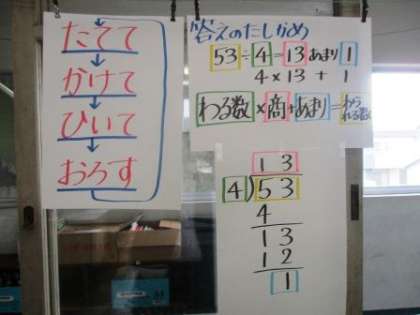 たてて
かけて
ひいて
おろす
答えのたしかめ
53÷4=13あまり1
4×13+1
わる数×商+あまり=わられる数
13
4)53
4
13
12
1